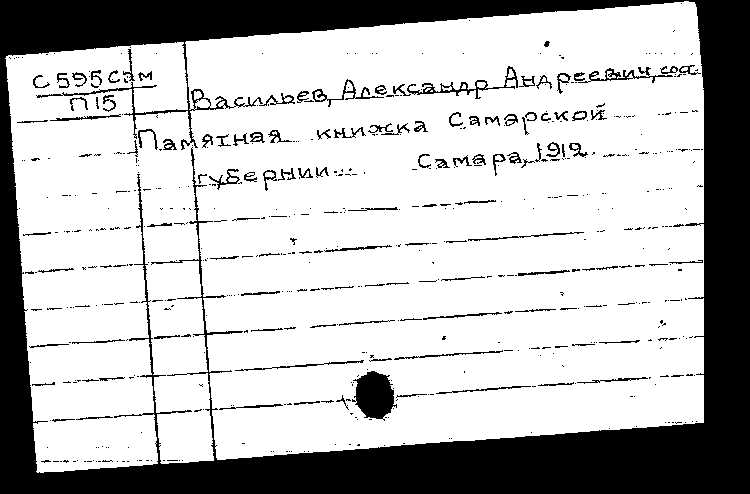 С 595 Сам
П 15
Васильев, Александр Андреевич, сост.
Памятная книжка Самарской
губернии... Самара, 1912.